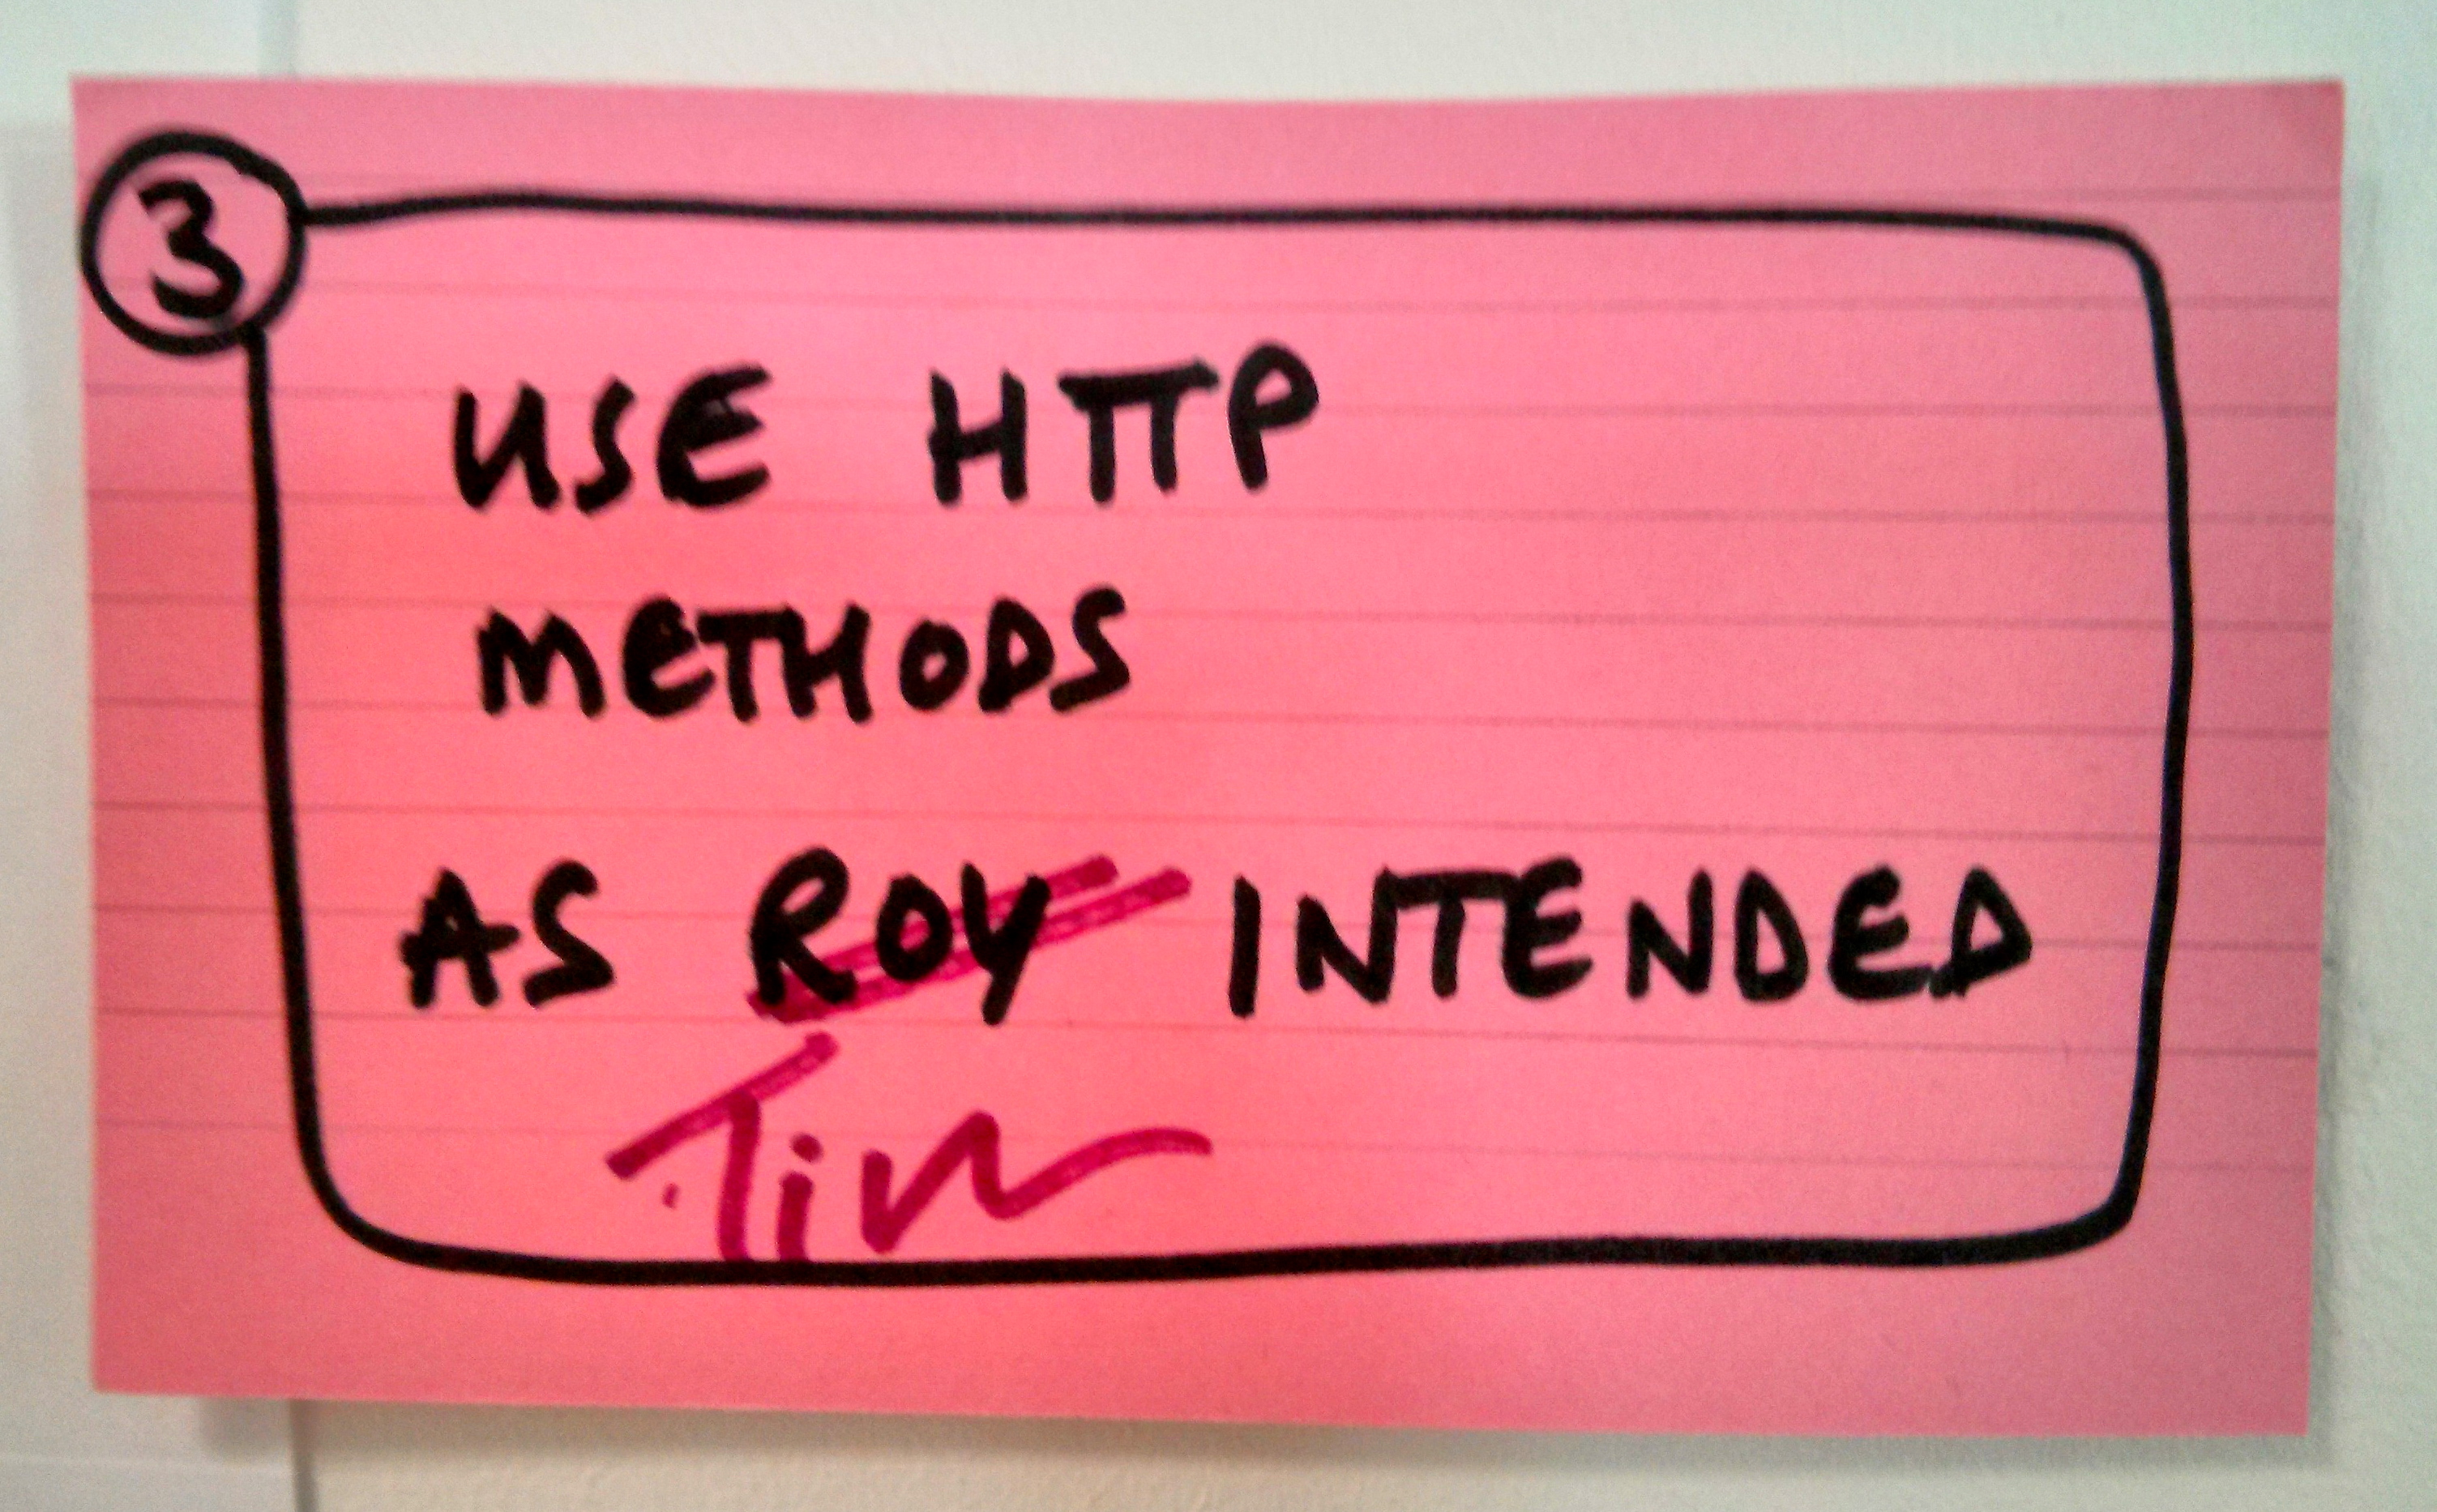 3
USE HTTP
METHODS
AS ROY INTENDED
Tim